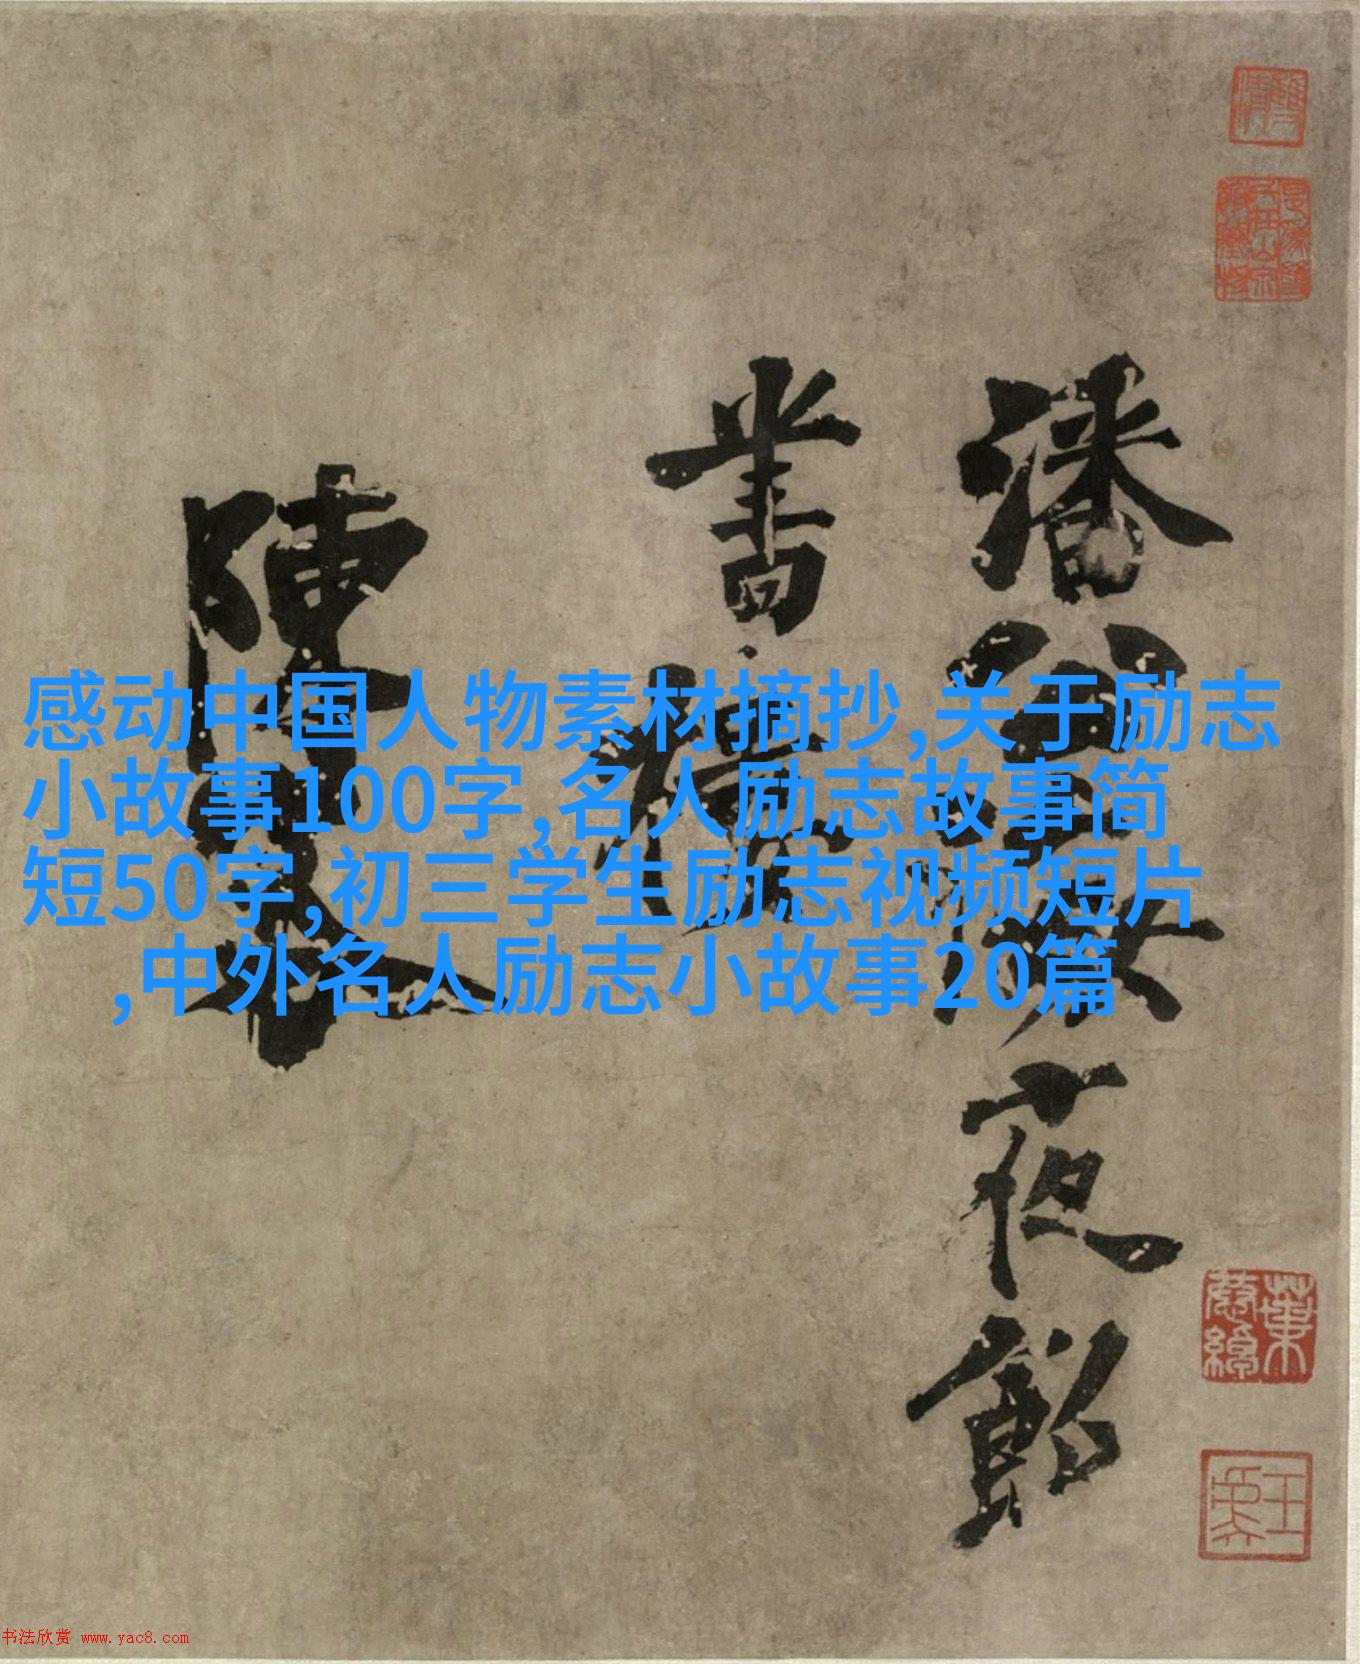 潘公海夜飲
書樓
陳
感动中国人物素材摘抄,关于励志
小故事100字,名人励志故事简
短50字,初三学生励志视频短片
,中外名人励志小故事20篇
书法欣赏 www.yac8.com